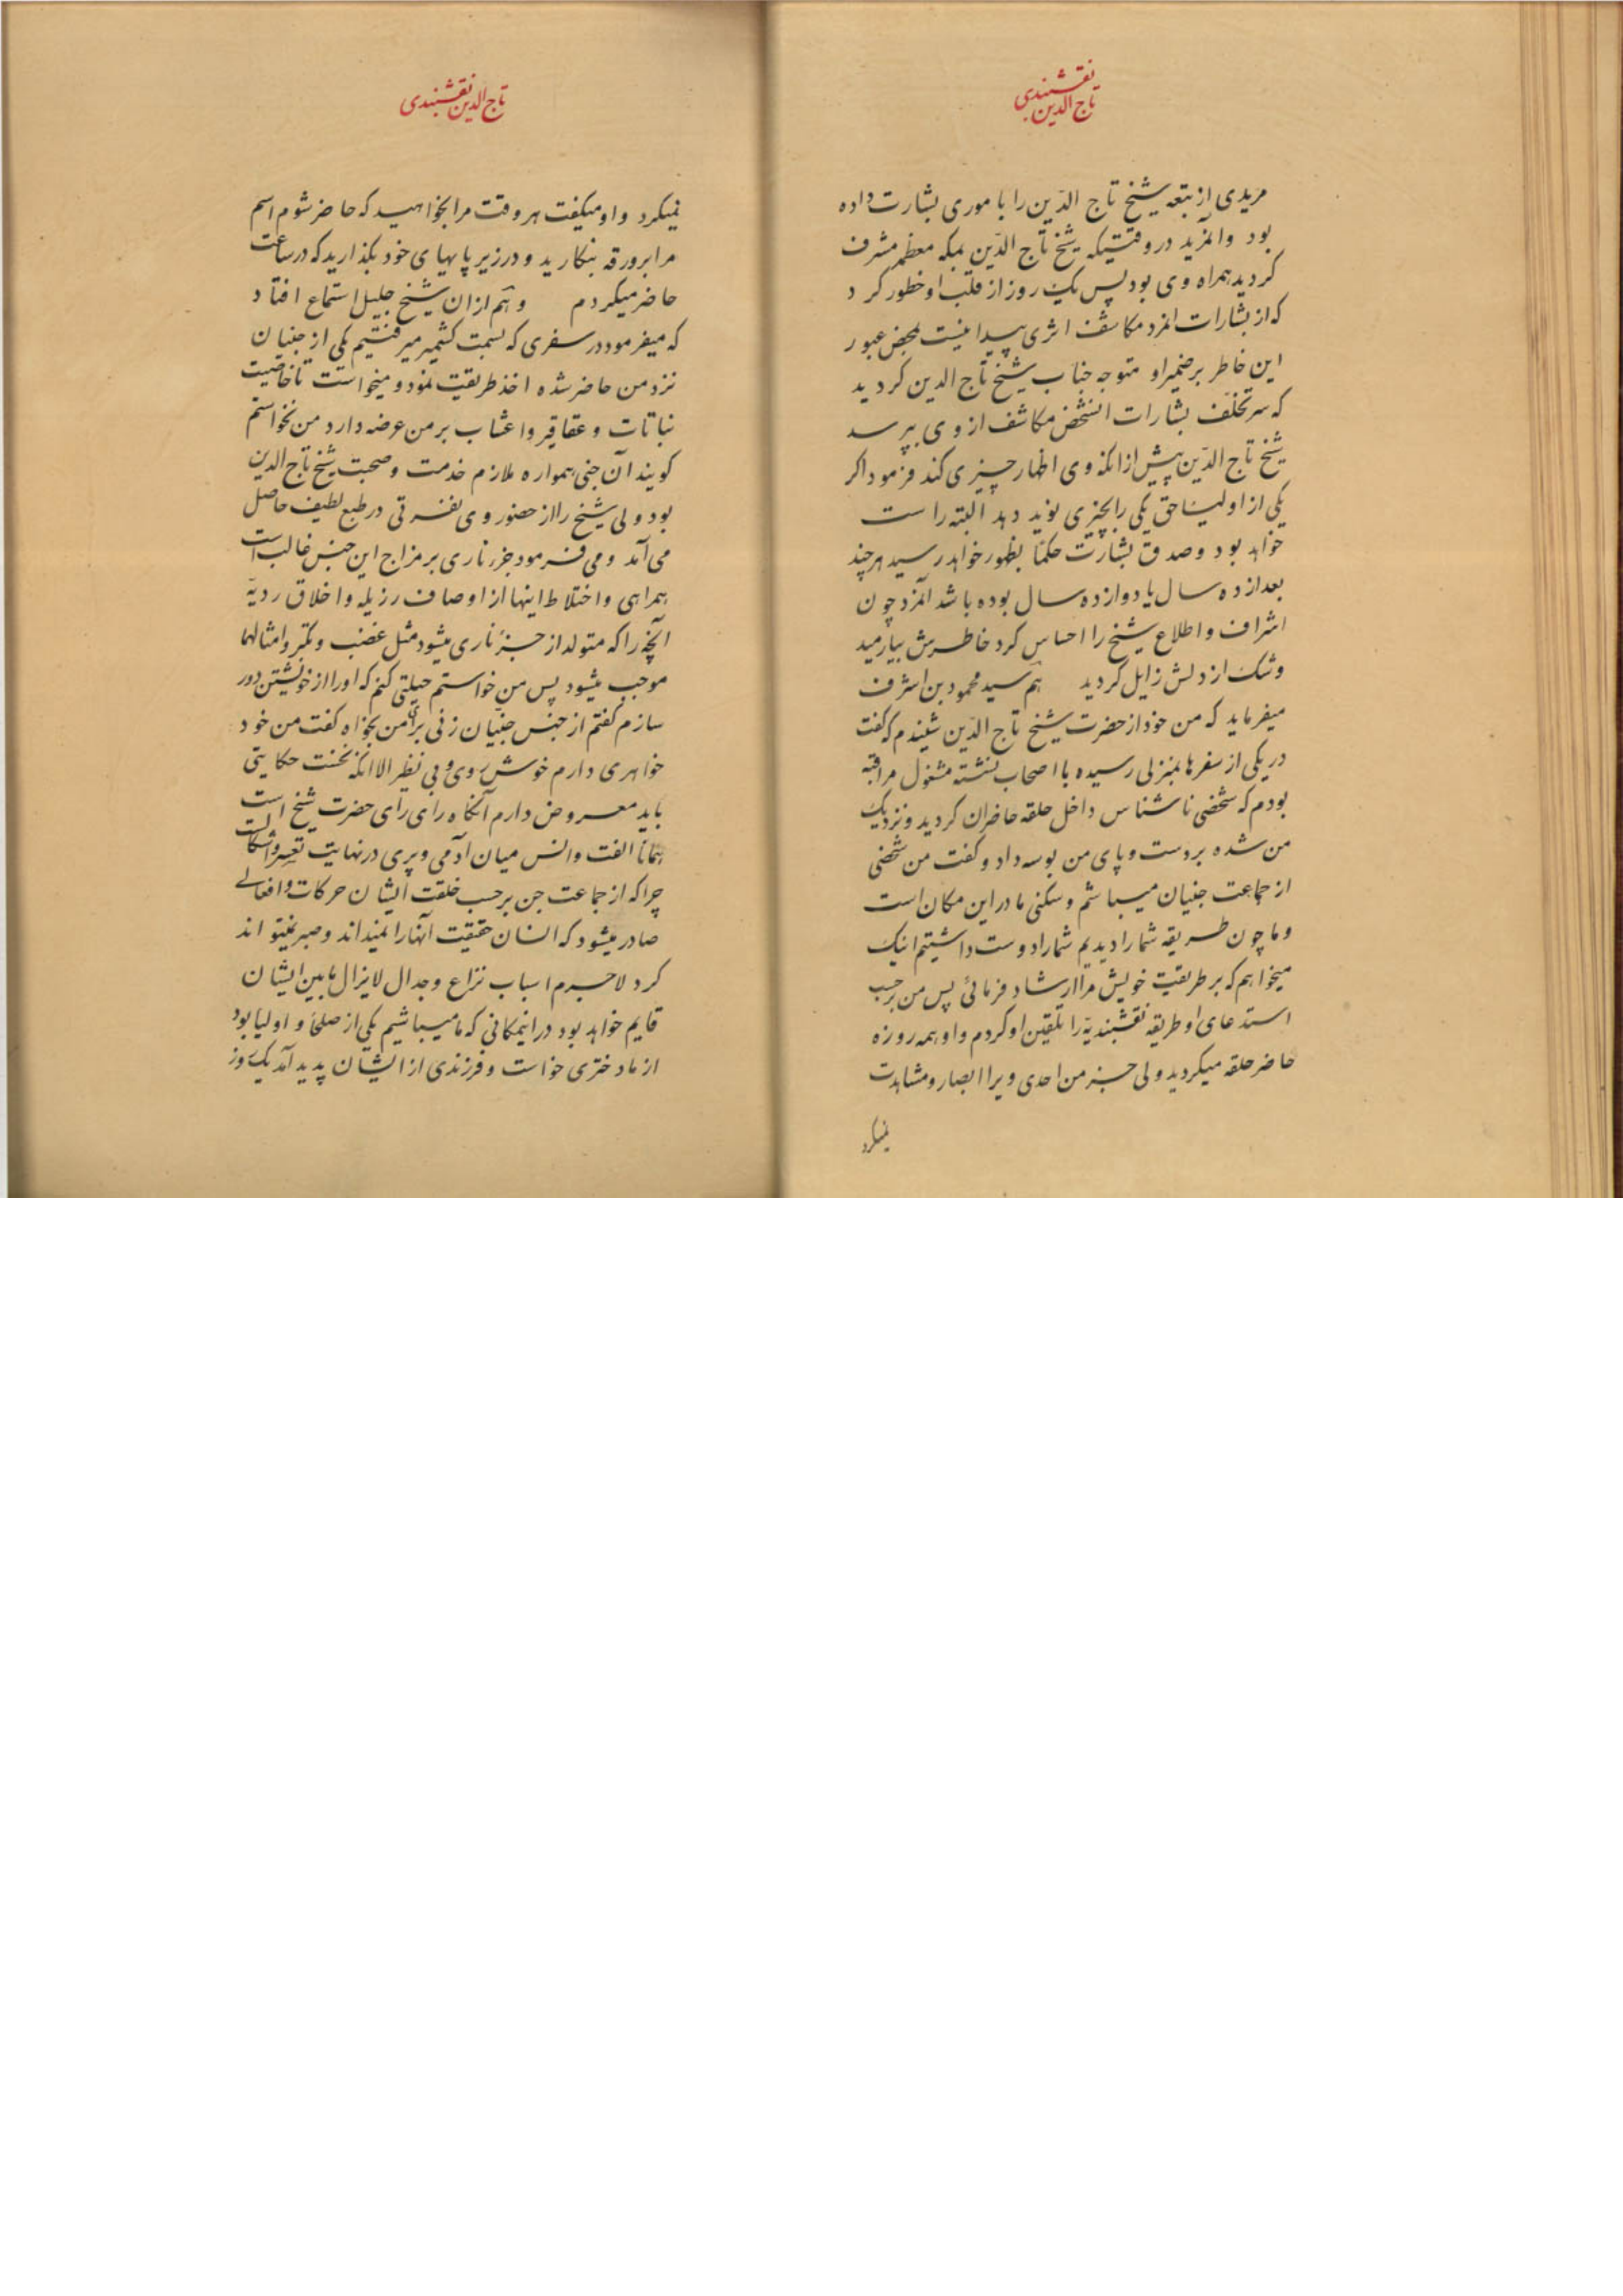 نقشبندی
تاج الدین
مریدی از تبعه شیخ تاج الدّین را باموری بشارت داده
بود وانمرید در وقتیکه شیخ تاج الدّین بمکه معظمه مشرف
گردید همراه وی بود پس یک روز از قلب او خطور کرد
که از بشارات انمرد مکاشف اثری پیدا نیست بمحض عبور
این خاطر بر ضمیر او متوجه جناب شیخ تاج الدین کردید
که سرّ تخلّف بشارات انشخص مکاشف از وی بپرسد
شیخ تاج الدّین پیش از انکه وی اظهار چیزی کند فرمود اکر
یکی از اولیاء حق یکی را بچیزی نوید دهد البته راست
خواهد بود و صدق بشارت حکماً بظهور خواهد رسید هرچند
بعد از ده سال یا دوازده سال بوده باشد آنمرد چون
اشراف و اطلاع شیخ را احساس کرد خاطرش بیارمید
و شک از دلش زایل کردید هم سید محمود بن اشرف
میفرماید که من خود از حضرت شیخ تاج الدّین شنیدم که گفت
در یکی از سفرها بمنزلی رسیده با اصحاب نشسته مشغول مراقبه
بودم که شخصی ناشناس داخل حلقه حاضران کردید و نزدیک
من شده بر دست و پای من بوسه داد و گفت من شخصی
از جماعت جنیان میباشم و سکنی ما در این مکان است
و ما چون طریقه شما را دیدیم شما را دوست داشتیم اینک
میخواهم که بر طریقت خویش مرا ارشاد فرمائی پس من برحسب
استدعای او طریقه نقشبندیّه را تلقین او کردم و او همه روزه
حاضر حلقه میکردید ولی جز من احدی ویرا ابصار و مشاهدت
نمیکرد
تاج الدین نقشبندی
نمیکرد و او میکفت هر وقت مرا بخواهید که حاضر شوم اسم
مرا بر ورقه بنکارید و در زیر پایهای خود بگذارید که در ساعت
حاضر میکردم و هم از ان شیخ جلیل استماع افتاد
که میفرمود در سفری که بسمت کشمیر میرفتیم یکی از جنیان
نزد من حاضر شده اخذ طریقت نمود و میخواست تا خاصّیت
نباتات و عقاقیر و اعشاب بر من عرضه دارد من نخواستم
کویند آن جنی همواره ملازم خدمت و صحبت شیخ تاج الدین
بود ولی شیخ را از حضور وی نفرتی در طبع لطیف حاصل
می آمد و می فرمود جزء ناری بر مزاج این جنس غالب است
همراهی و اختلاط اینها از اوصاف رزیله و اخلاق ردیّه
آنچه را که متولد از جزء ناری میشود مثل غضب و تکبر و امثالهما
موجب میشود پس من خواستم حیلتی کنم که او را از خویشتن دور
سازم کفتم از جنس جنّیان زنی برای من بخواه کفت من خود
خواهری دارم خوش روی و بی نظیر الا انکه نخست حکایتی
باید معروض دارم آنکاه رای رای حضرت شیخ است
همانا الفت و انس میان آدمی و پری در نهایت تعسر و اشکالست
چرا که از جماعت جن برحسب خلقت ایشان حرکات و افعالی
صادر میشود که انسان حقیقت آنها را نمیداند و صبر نمیتواند
کرد لاجرم اسباب نزاع و جدال لایزال مابین ایشان
قایم خواهد بود در اینمکانی که ما میباشیم یکی از صلحا و اولیا بود
از ما دختری خواست و فرزندی از ایشان پدید آمد یک روز